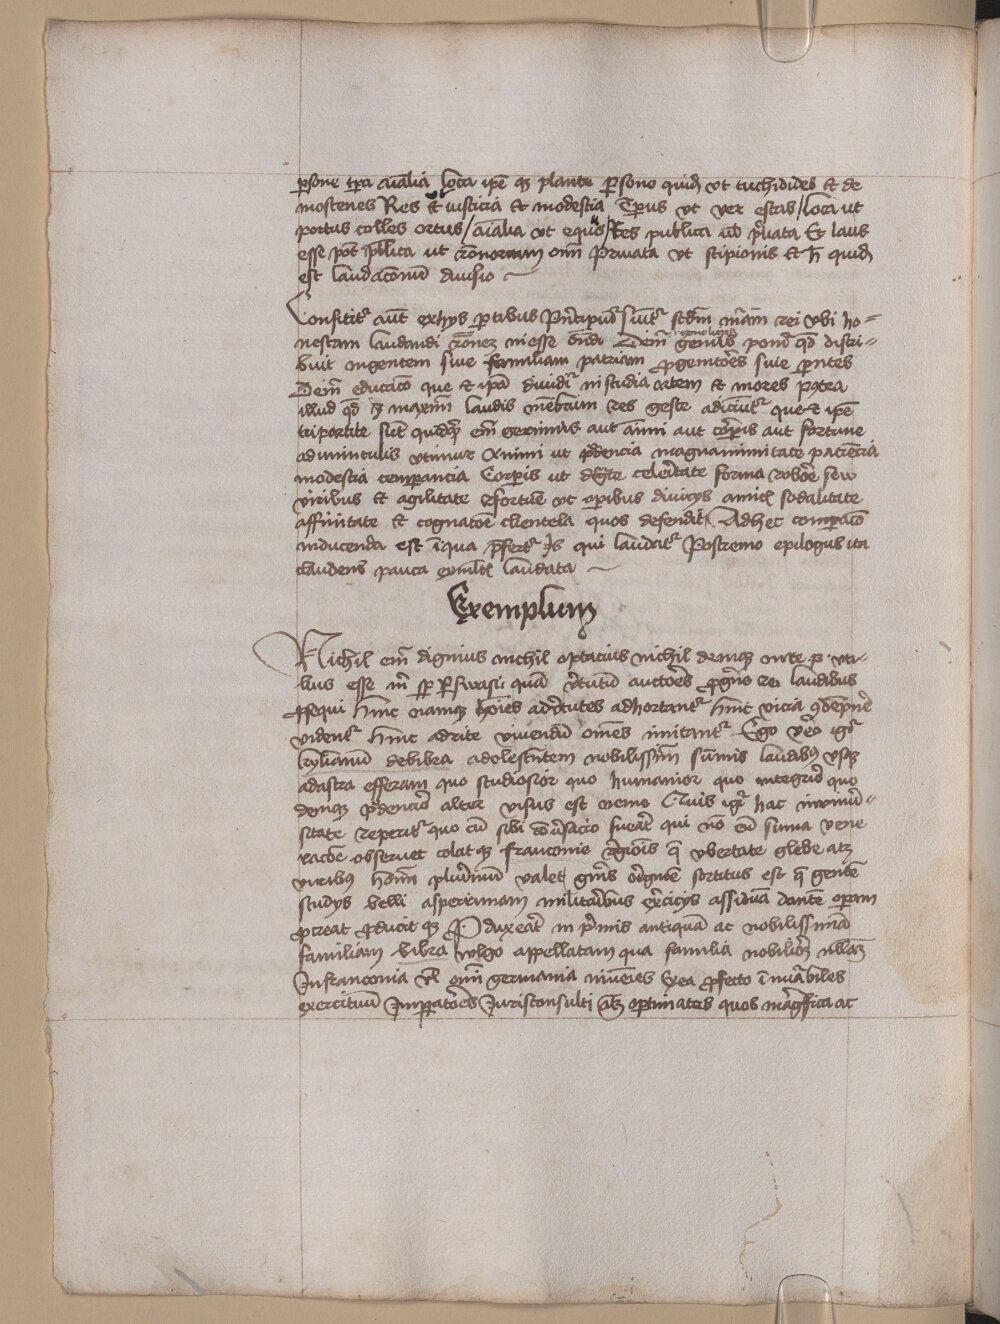 psone tpa aialia loca ipe qȝ plante psone quidȝ vt tuchidides et de
mostenes Res vt iusticia et modestia Tpus vt ver estas / loca ut
portus colles ortus / aialia vt equus / Res publica vel pvata Et laus
esse pot publica ut romanorum omni Privata vt scipionis et h quidȝ
est laudacionum diuisio
Consistit aut ex hys ptibus principium sumit scdm mam rei vbi ho-
nestam laudandi ronem inesse ondit Dein genus ponit qd distri-
buit in gentem siue familiam patriam pgenitores siue pntes
Dein educaco que et ipa diuidit in studia artem et mores postea
illud qd et maximu laudis membrum res geste adiciunt que et ipe
tripartite sunt quidqȝ em gerimus aut animi aut corporis aut fortune
adminiculis vtimur Animi ut prudencia magnanimitate paciencia
modestia temperancia Corporis ut celeritate forma robore seu
viribus et agilitate fortune vt opibus diuicijs amicis sodalitate
affinitate et cognatoe clientela quos defendit Adhec comparaco
inducenda est in qua pfert Is qui laudat Postremo epilogus ita
claudens pauca laudata
Exemplum
Nichil em dignius nichil optacius nichil denique ante p. vti-
lius esse mi sp pswasi quam virtutum auctores laudibus
psequi hinc namqȝ hoies ad virtutes adhortant hinc vicia
vident hinc ad rite viuendum omnes imitant Ego vero igr
kylianum de bibra adolescentem nobilissim summis laudibus vsqȝ
ad astra efferam quo studiosior quo humanior quo integrior quo
deniqȝ prudencior alter visus est nemo Quis igr hac in vniuer-
sitate reperit quo cum sibi conuersacio fuerat qui non eum summa vene
racoe obseruet colat qȝ franconie regionis que vbertate glebe atqȝ
viribus hominum plurimum valet generis originem sortitus est que gentem
studijs belli asperrimam militaribus exercicijs assiduam dantem operam
pcreat pducit qȝ Pduxerat in primis antiquam ac nobilissimam
familiam bibra wlgo appellatam qua familia nobilior nullam
In franconia vel omni germania inuenies Ex ea pfecto innumerabiles
exercituum Imperatores Jurisconsulti optimates quos magnifica ac